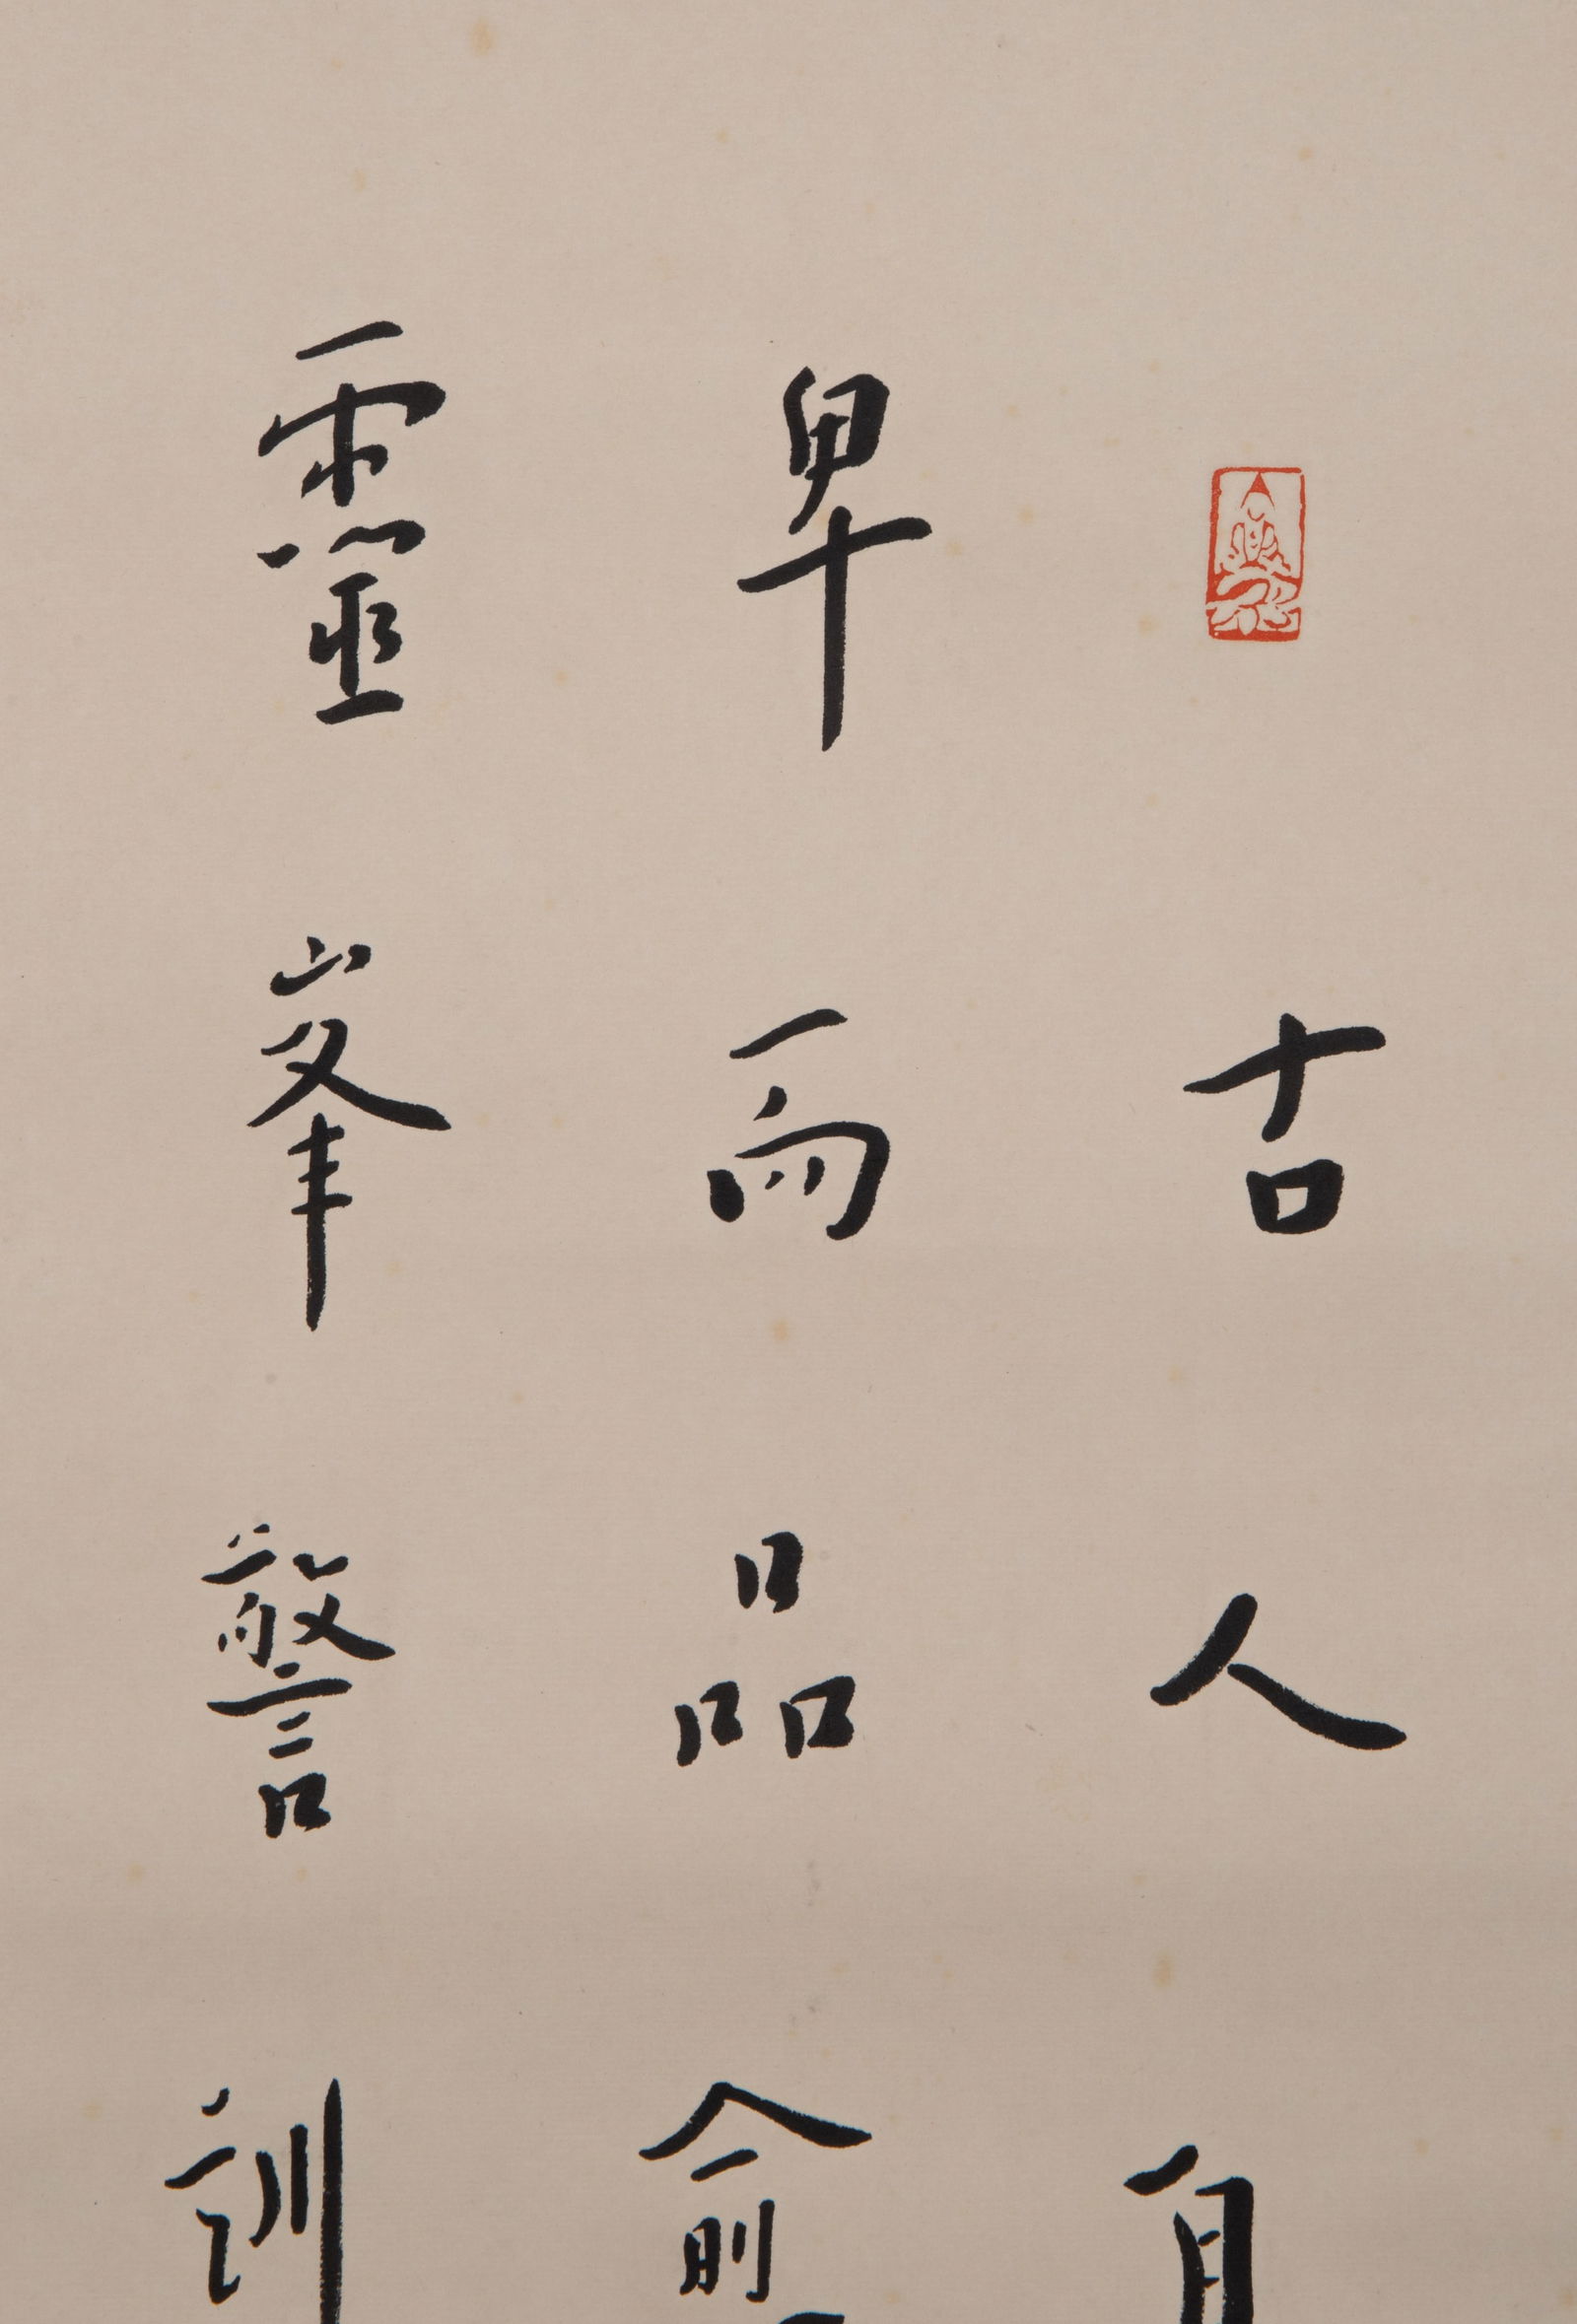 古人自
卑而品愈
靈峯警訓